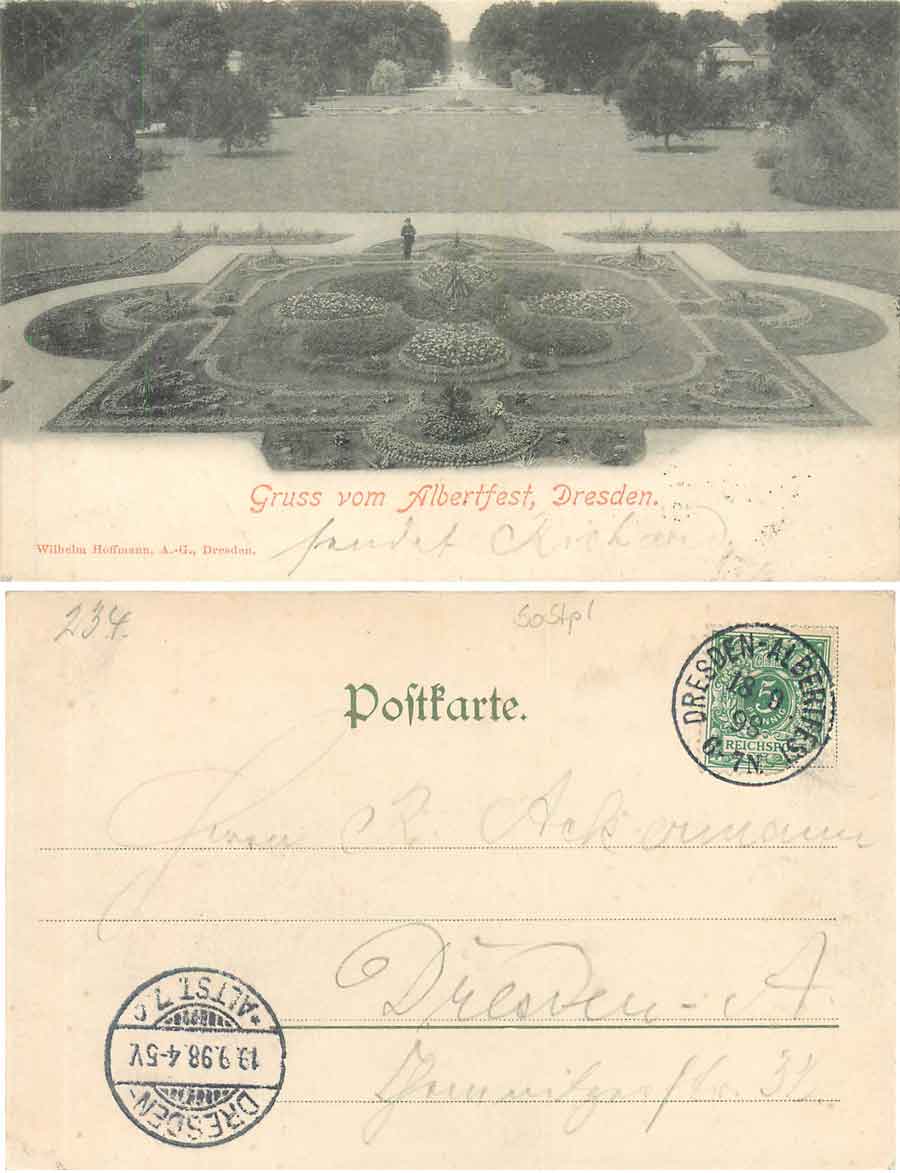 Gruss vom Albertfest, Dresden.
Wilhelm Hoffmann, A.-G., Dresden.
sendet Richard
234.
Postkarte.
DRESDEN-ALBERTFEST
18 9
98
6-7N.
5
PFENNIG
REICHSPOST
Herrn R. Ackermann
Dresden-A.
Chemnitzer Str. 32.
DRESDEN-
19.9.98.4-5V.
*ALTST. 7 c